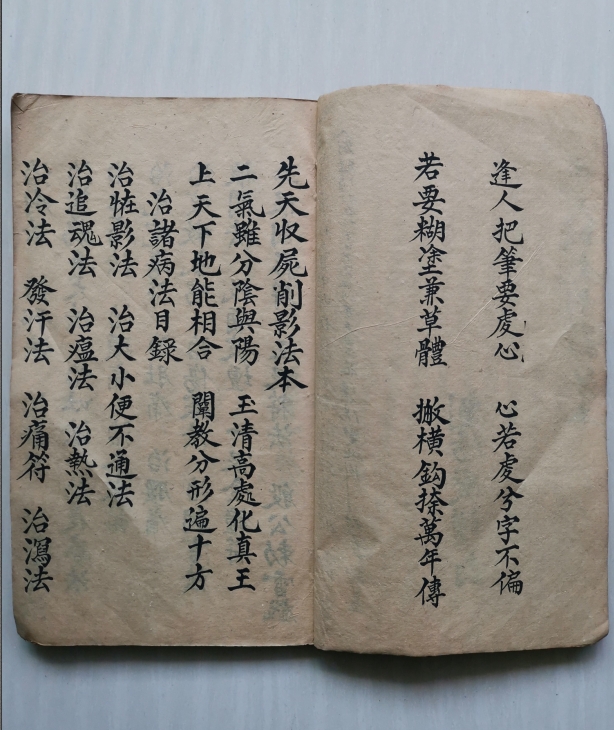 逢人把筆要虔心 心若虔兮字不偏
若要糊塗兼草體 撇橫鈎捺萬年傳
先天收屍削影法本
二氣雖分陰與陽 玉清高處化真王
上天下地能相合 闡教分形遍十方
治諸病法目錄
治恠影法 治大小便不通法
治追魂法 治瘟法 治熱法
治冷法 發汗法 治痛符 治瀉法